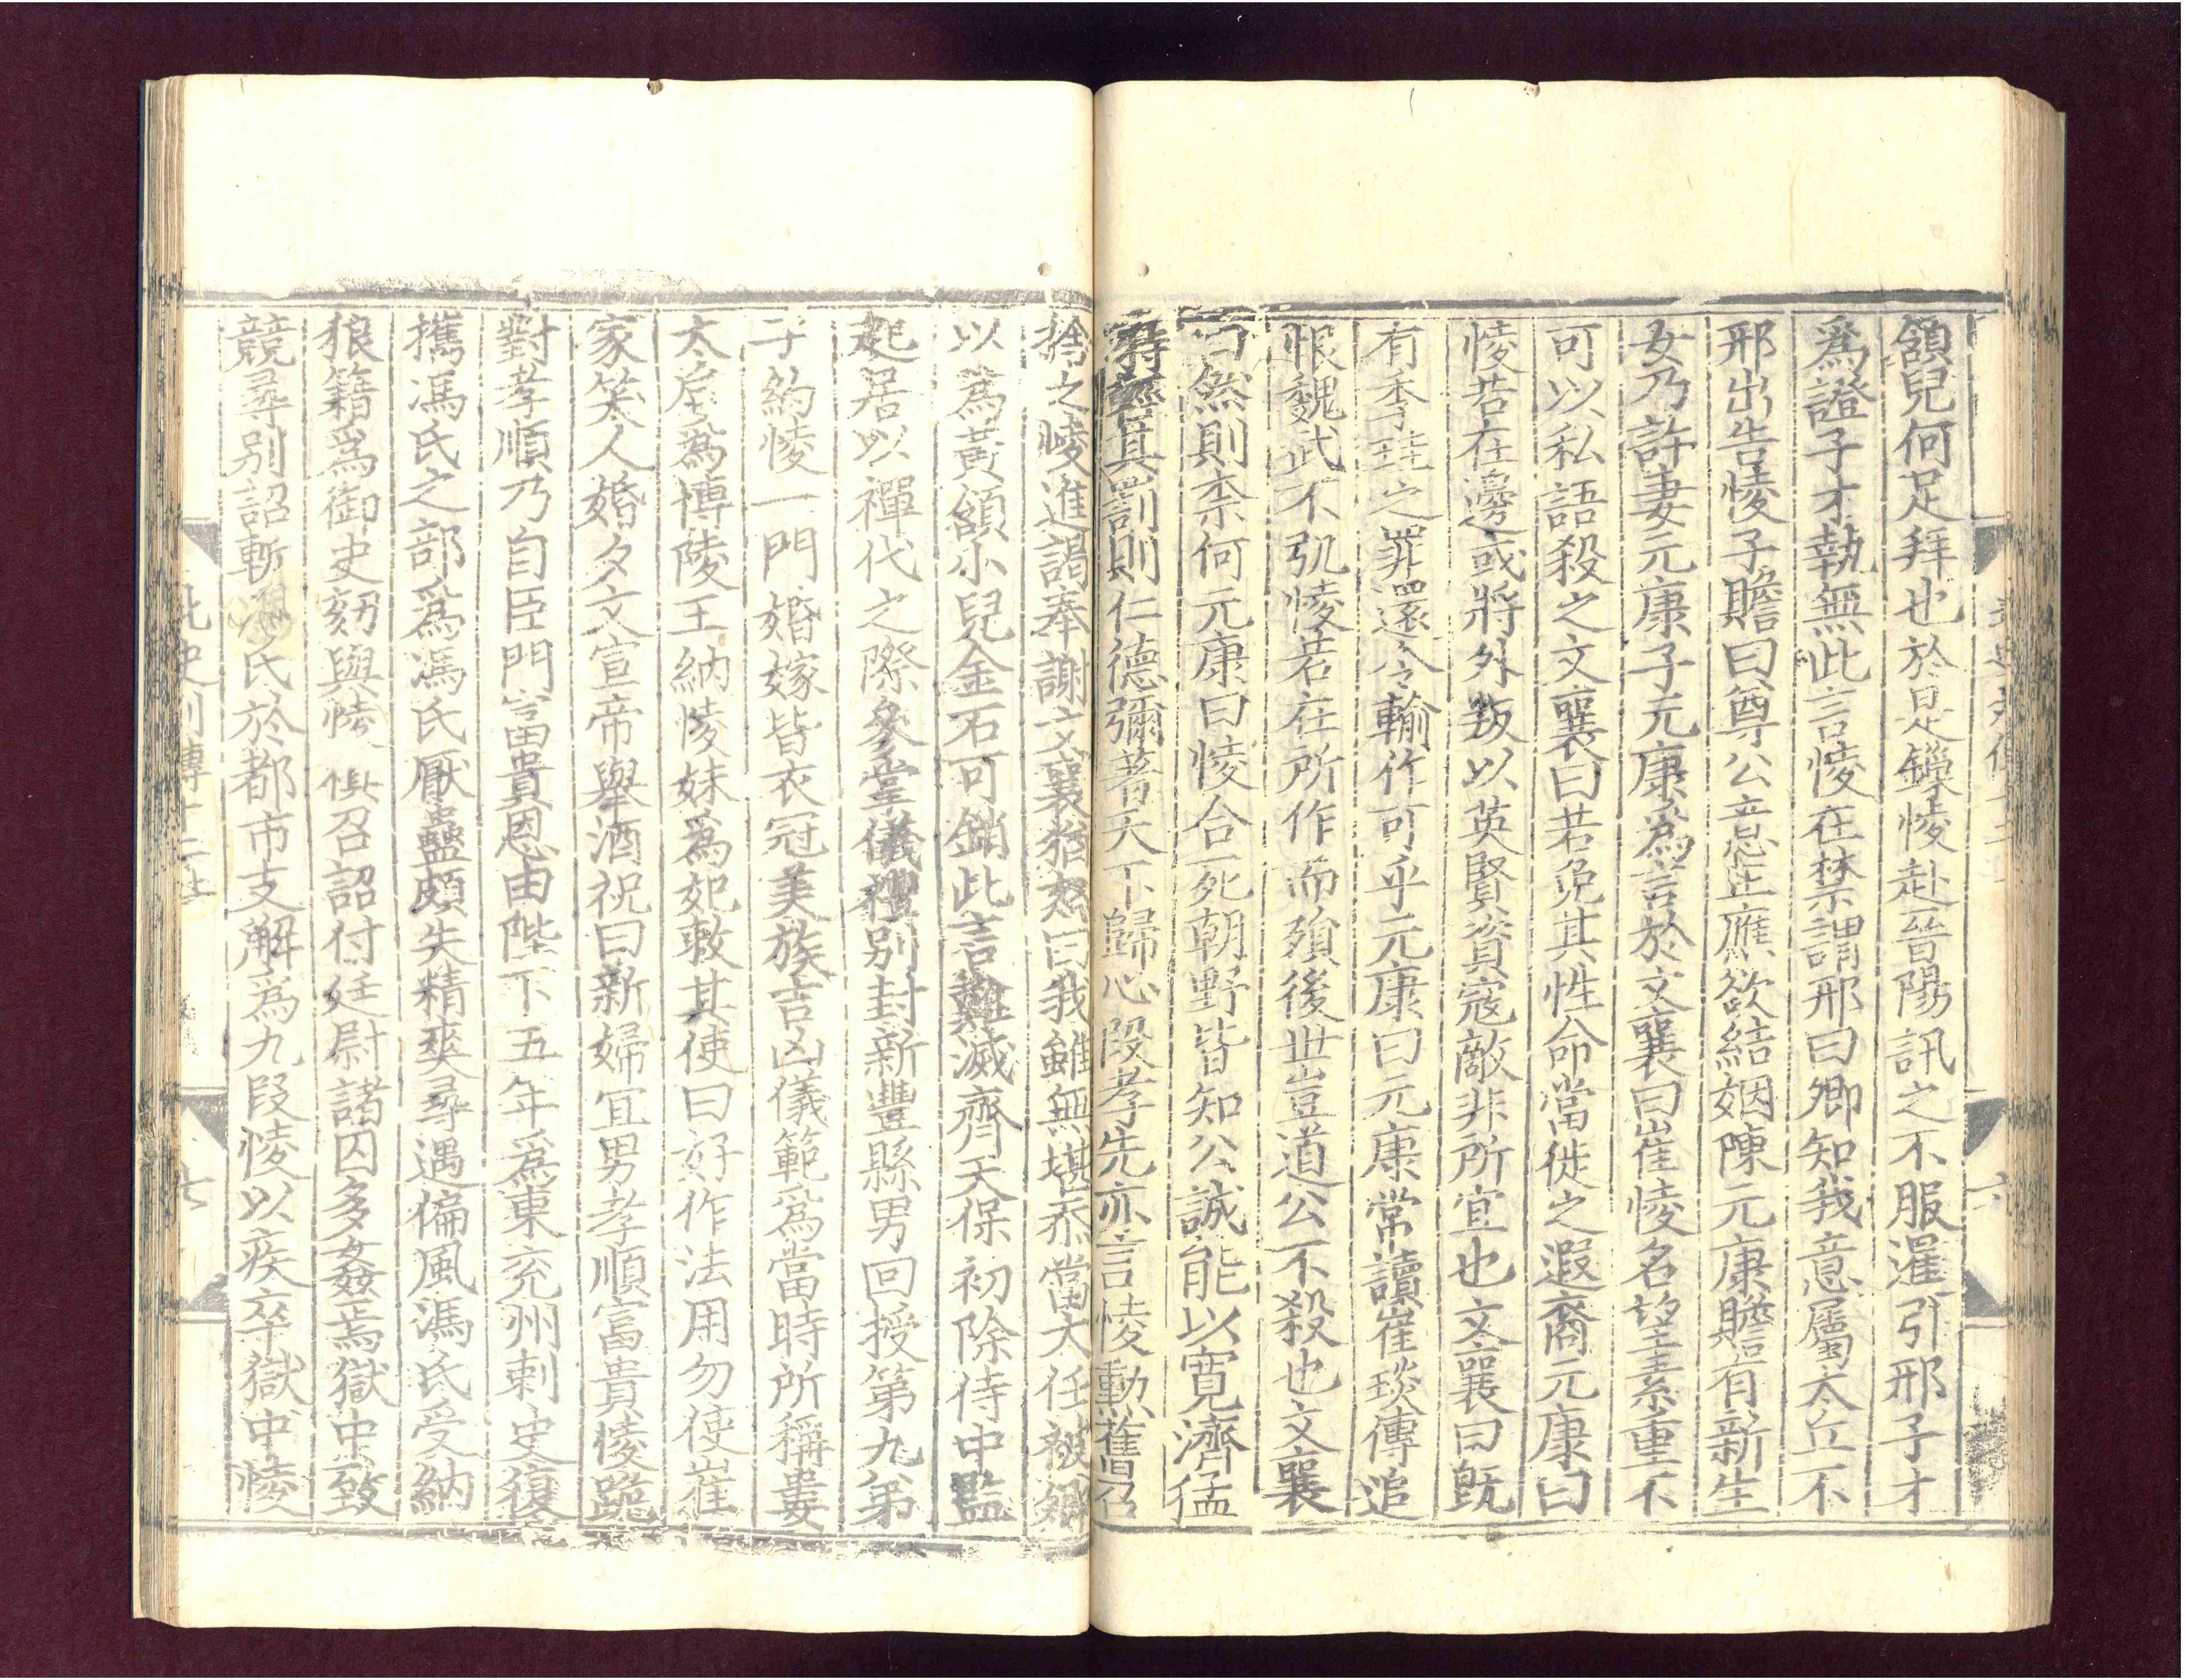 頷兒何足拜也於是鏁㥄赴晉陽訊之不服暹引邢子才
爲證子才執無此言㥄在禁謂邢曰卿知我意屬太丘不
邢出告㥄子贍曰尊公意正應欲結姻陳元康贍有新生
女乃許妻元康子元康爲言於文襄曰崔㥄名望素重不
可以私語殺之文襄曰若免其性命當徙之遐裔元康曰
㥄若在邊或將外叛以英賢資寇敵非所宜也文襄曰旣
有季珪之罪還令輸作可乎元康曰元康常讀崔琰傳追
恨魏武不弘㥄若在所作而殞後世豈道公不殺也文襄
曰然則柰何元康曰㥄合死朝野皆知公誠能以寬濟猛
特輕其罰則仁德彌著天下歸心段孝先亦言㥄勳舊召
捨之㥄進謁奉謝文襄猶怒曰我雖無堪忝當大任被卿
以爲黃頷小兒金石可銷此言難滅齊天保初除侍中監
起居以禪代之際參堂儀禮別封新豐縣男回授第九弟
子約㥄一門婚嫁皆衣冠美族吉凶儀範爲當時所稱婁
太后爲博陵王納㥄妹爲妃敕其使曰好作法用勿使崔
家笑人婚夕文宣帝舉酒祝曰新婦宜男孝順富貴㥄跪
對孝順乃自臣門富貴恩由陛下五年爲東兗州刺史復
攜馮氏之部爲馮氏厭蠱頗失精爽尋遇偏風馮氏受納
狼籍爲御史劾與㥄俱召詔付廷尉諸囚多姦焉獄中致
競尋別詔斬馮氏於都市支解爲九段㥄以疾卒獄中㥄
北史列傳十二
七